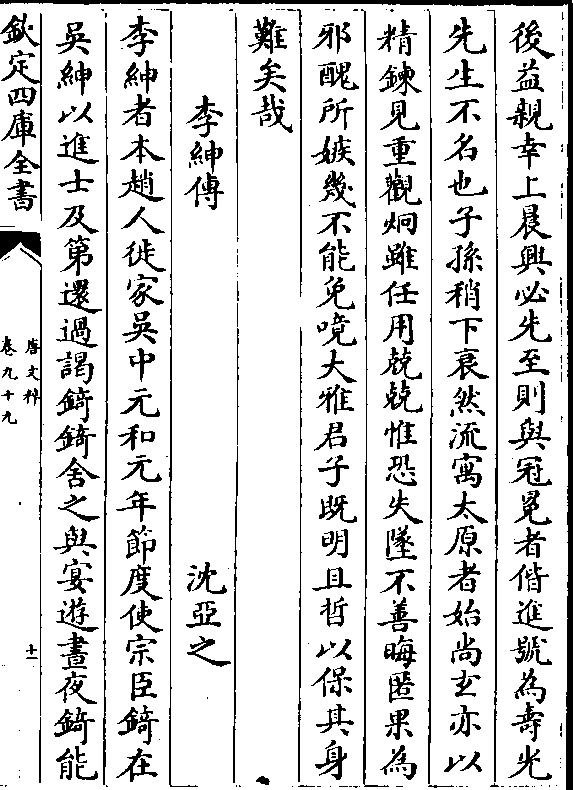 後益親幸上晨興必先至則與冠冕者偕進號為壽光
先生不名也子孫稍下衰然流寓太原者始尚玄亦以
精鍊見重觀炯雖任用兢兢惟恐失墜不善晦匿果為
邪醜所嫉幾不能免噫大雅君子既明且哲以保其身
難矣哉
李紳傳
沈亞之
李紳者本趙人徙家吳中元和元年節度使宗臣錡在
吳紳以進士及第還過謁錡錡舍之與宴遊晝夜錡能
欽定四庫全書
唐文粹
卷九十九
十一